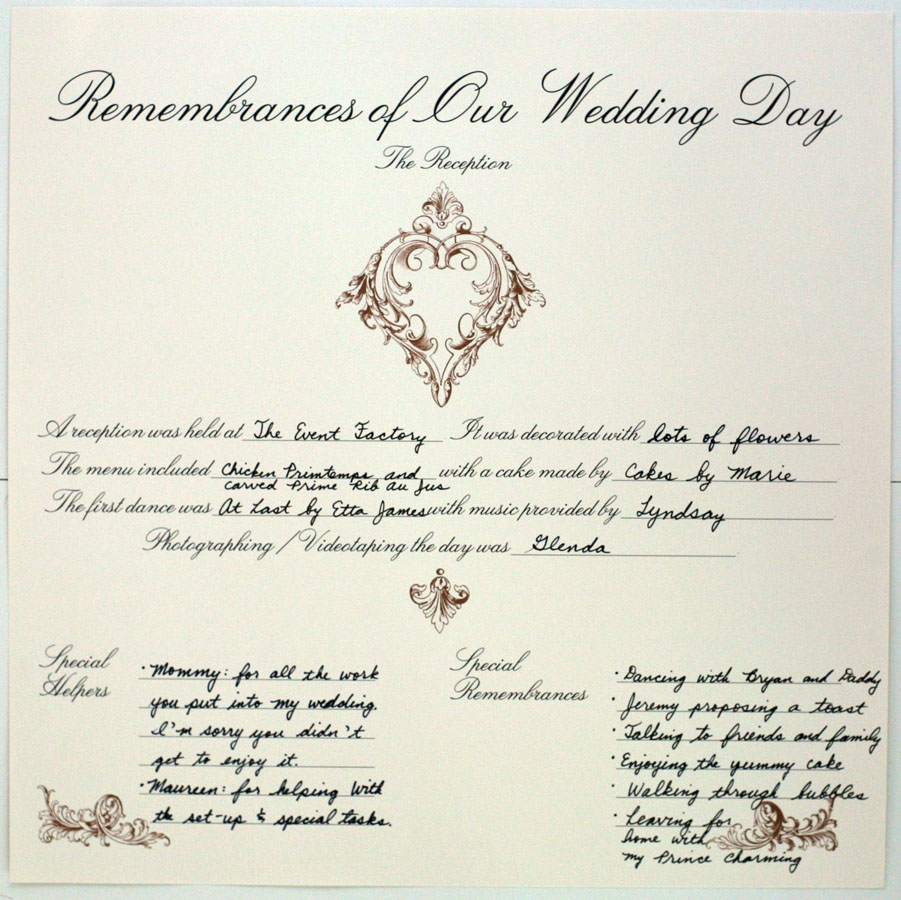 Remembrances of Our Wedding Day
The Reception
A reception was held at The Event Factory It was decorated with lots of flowers
The menu included Chicken Printemps and with a cake made by Cakes by Marie
carved Prime Rib Au Jus
The first dance was At Last by Etta James with music provided by Lyndsay
Photographing / Videotaping the day was Glenda
Special
Helpers
· Mommy: for all the work
you put into my wedding.
I'm sorry you didn't
get to enjoy it.
· Maureen: for helping with
the set-up & special tasks.
Special
Remembrances
· Dancing with Bryan and Daddy
· Jeremy proposing a toast
· Talking to friends and family
· Enjoying the yummy cake
· Walking through bubbles
· Leaving for
home with
my Prince Charming